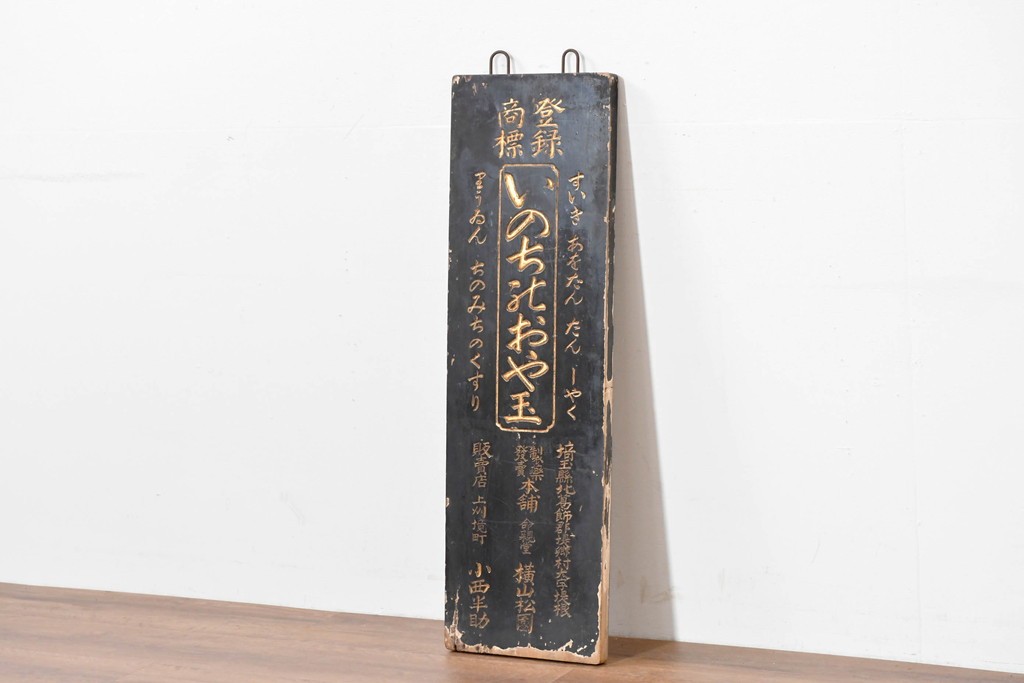 登録
商標
すいき あをたん たん しやく
いのち乃おや玉
りうゐん ちのみちのくすり
埼玉縣北葛飾郡
製薬
發賣
本舗 命親堂 横山松園
販賣店 上州境町 小西半助